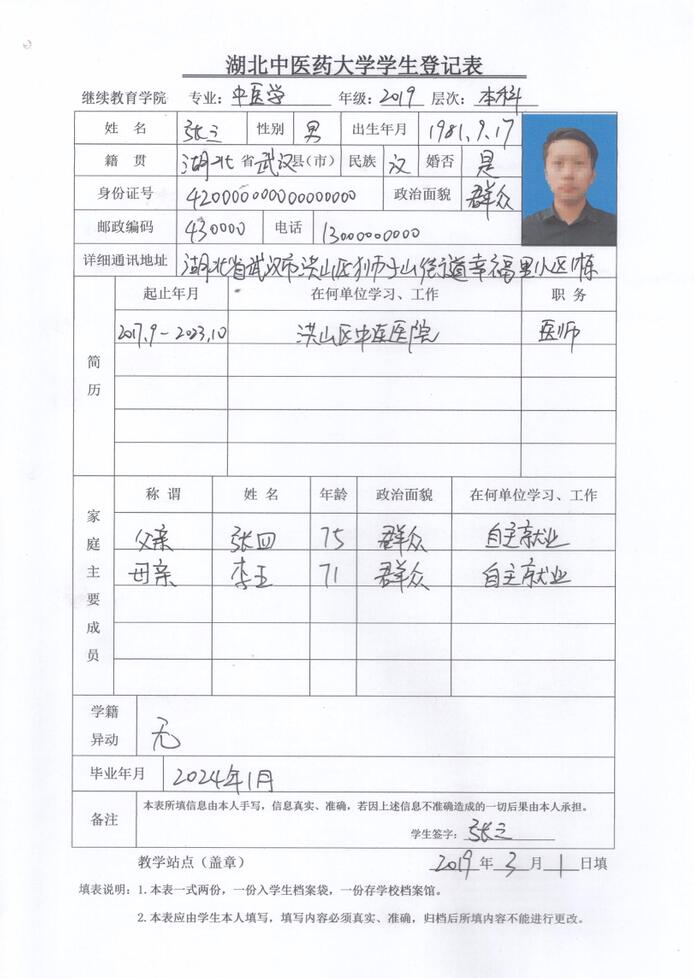 湖北中医药大学学生登记表
继续教育学院 专业:中医学 年级:2019 层次:本科
姓 名 张三 性别 男 出生年月 1981.9.17
籍 贯 湖北省武汉县(市) 民族 汉 婚否 是
身份证号 420000000000000000 政治面貌 群众
邮政编码 430000 电话 13000000000
详细通讯地址 湖北省武汉市洪山区狮子山街道幸福里小区1栋
简历
起止年月 在何单位学习、工作 职 务
2017.9-2023.10 洪山区中医医院 医师
家庭主要成员
称 谓 姓 名 年龄 政治面貌 在何单位学习、工作
父亲 张四 75 群众 自主就业
母亲 李五 71 群众 自主就业
学籍异动 无
毕业年月 2024年1月
备注 本表所填信息由本人手写,信息真实、准确,若因上述信息不准确造成的一切后果由本人承担。
学生签字:张三
教学站点(盖章) 2019年3月1日填
填表说明:1.本表一式两份,一份入学生档案袋,一份存学校档案馆。
2.本表应由学生本人填写,填写内容必须真实、准确,归档后所填内容不能进行更改。